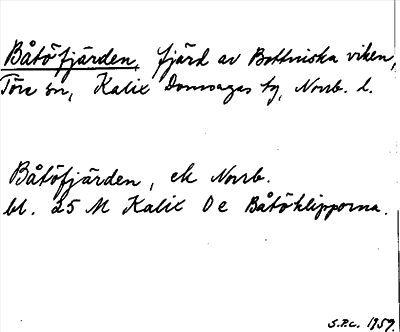 Båtöfjärden, fjärd av Bottniska viken,
Töre sn, Kalix Domsagas tg, Norrb. l.
Båtöfjärden, ek Norrb.
bl. 25 M Kalix O e Båtöklipporna.
S.P.C. 1959.